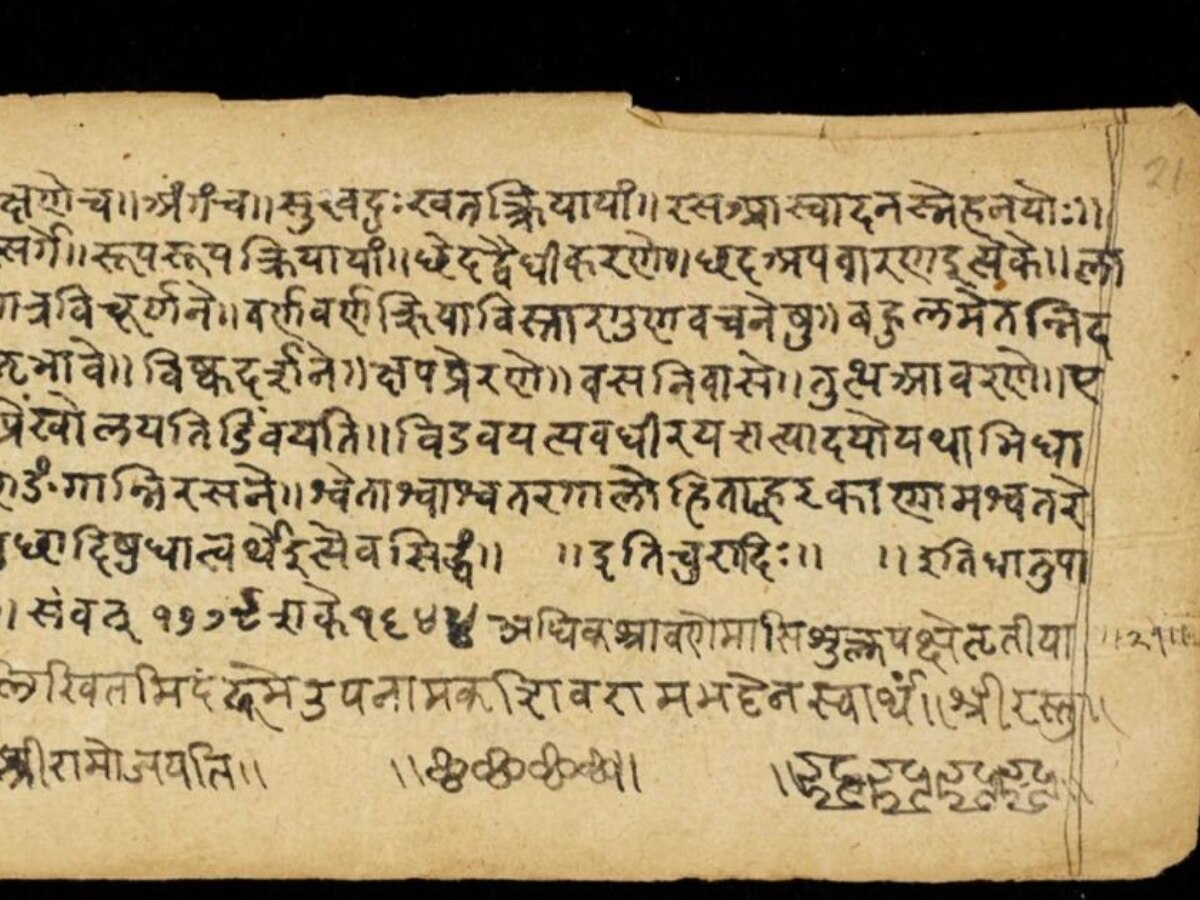 21
क्षणे च॥ अंगं च॥ सुखदुःखतत्क्रियायां॥ रसआस्वादनस्नेहनयोः॥
सर्गे॥ रूपरूपक्रियायां॥ छेदद्वैधीकरणे॥ छदअपवारणइत्येके॥ ला
गात्रविचूर्णने॥ वर्णवर्णक्रियाविस्तारगुणवचनेषु॥ बहुलमेतन्निद
भावे॥ विष्कदर्शने॥ क्षपप्रेरणे॥ वसनिवासे॥ तुत्थआवरणे॥ ए
प्रेंखोलयति डिंवयति॥ विडवयत्यवधीरयत्यादयो यथाभिधा
णिङंगान्निरसने॥ श्वेताश्वाश्वतरगालोडिताह्वरकाणामश्वतरे
पुछादिषुधात्वर्थेइत्येवसिद्धं॥ ॥इति चुरादिः॥ ॥इतिधातुपा
। संवत् १७७९ शके १६४४ अधिकश्रावणेमासि शुक्लपक्षे तृतीया ॥२१॥
लिखितमिदं उपनामकशिवरामभट्टेन स्वार्थं॥ श्रीरस्तु॥
श्रीरामोजयति॥